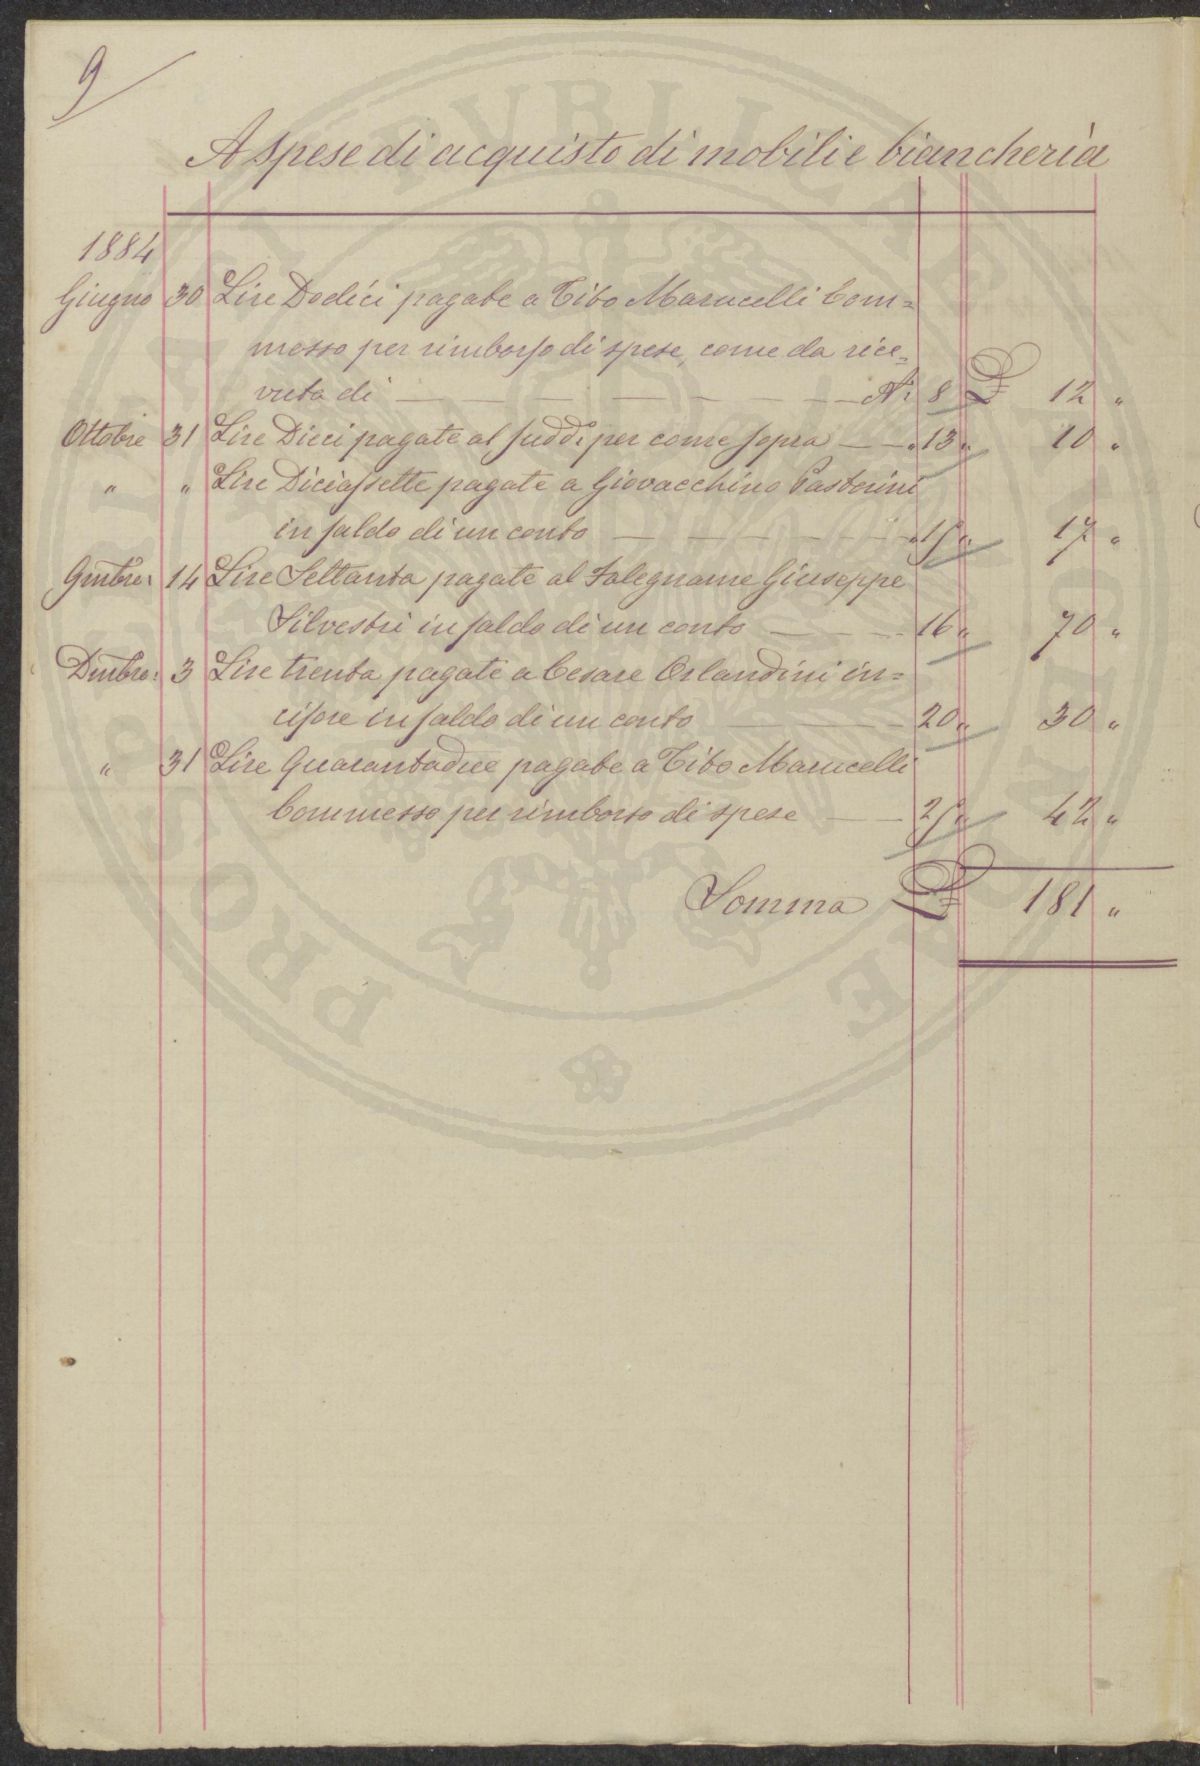 9
A spese di acquisto di mobili e biancheria
1884
Giugno 30 Lire Dodici pagate a Tito Marucelli Com=
messo per rimborso di spese, come da rice=
vuta di — — — — — N.º 8 £ 12 "
Ottobre 31 Lire Dieci pagate al sudd.º per come sopra — — " 13 " 10 "
" " Lire Diciassette pagate a Giovacchino Pastorini
in saldo di un conto — — — — — " 15 " 17 "
9mbre: 14 Lire Settanta pagate al Falegname Giuseppe
Silvestri in saldo di un conto — — — 16 " 70 "
Dmbre: 3 Lire trenta pagate a Cesare Orlandini in=
cisore in saldo di un conto — — — 20 " 30 "
" 31 Lire Quarantadue pagate a Tito Marucelli
Commesso per rimborso di spese — — 25 " 42 "
Somma £ 181 "